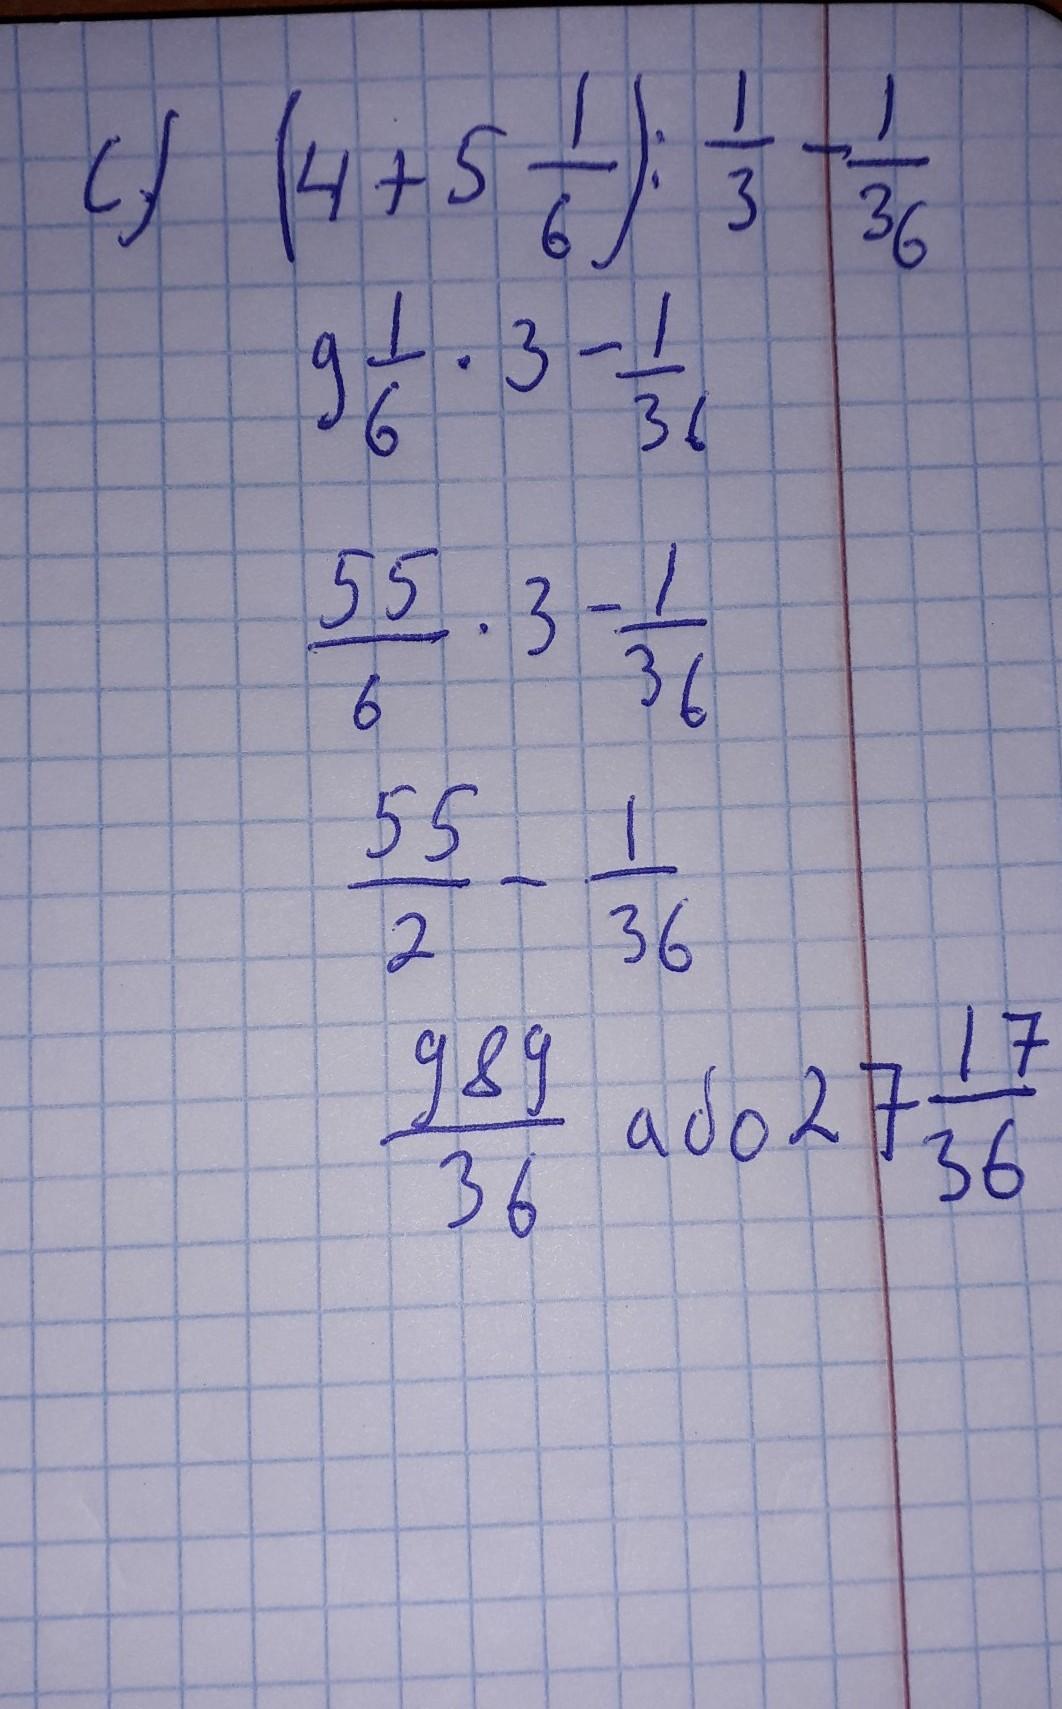 c) (4 + 5 1/6) : 1/3 - 1/36
9 1/6 · 3 - 1/36
55/6 · 3 - 1/36
55/2 - 1/36
989/36 або 27 17/36